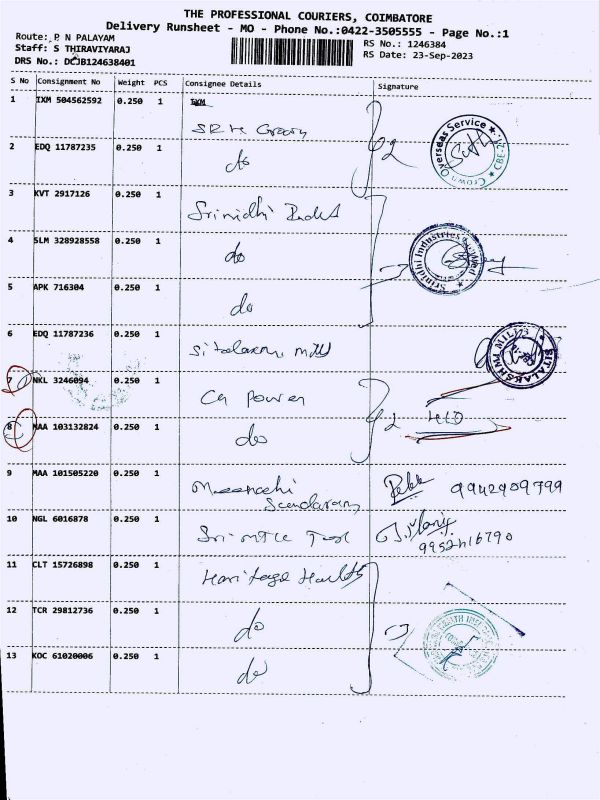 THE PROFESSIONAL COURIERS, COIMBATORE
Delivery Runsheet - MO - Phone No.:0422-3505555 - Page No.:1
Route: P N PALAYAM
RS No.: 1246384
Staff: S THIRAVIYARAJ
RS Date: 23-Sep-2023
DRS No.: DCJB124638401
S No Consignment No Weight PCS Consignee Details Signature
1 IXM 504562592 0.250 1 IXM
2 EDQ 11787235 0.250 1 do
Crown Overseas Service
3 KVT 2917126 0.250 1 Srinidhi
4 SLM 328928558 0.250 1 do
Srinidhi Industries Limited
5 APK 716304 0.250 1 do
6 EDQ 11787236 0.250 1
SITALAKSHMI MILLS
7 NKL 3246094 0.250 1 Power
8 MAA 103132824 0.250 1 do
9 MAA 101505220 0.250 1 Meenachi Sundaram 9942909799
10 NGL 6016878 0.250 1 Sri
11 CLT 15726898 0.250 1 Haritage
12 TCR 29812736 0.250 1 do
13 KOC 61020006 0.250 1 do